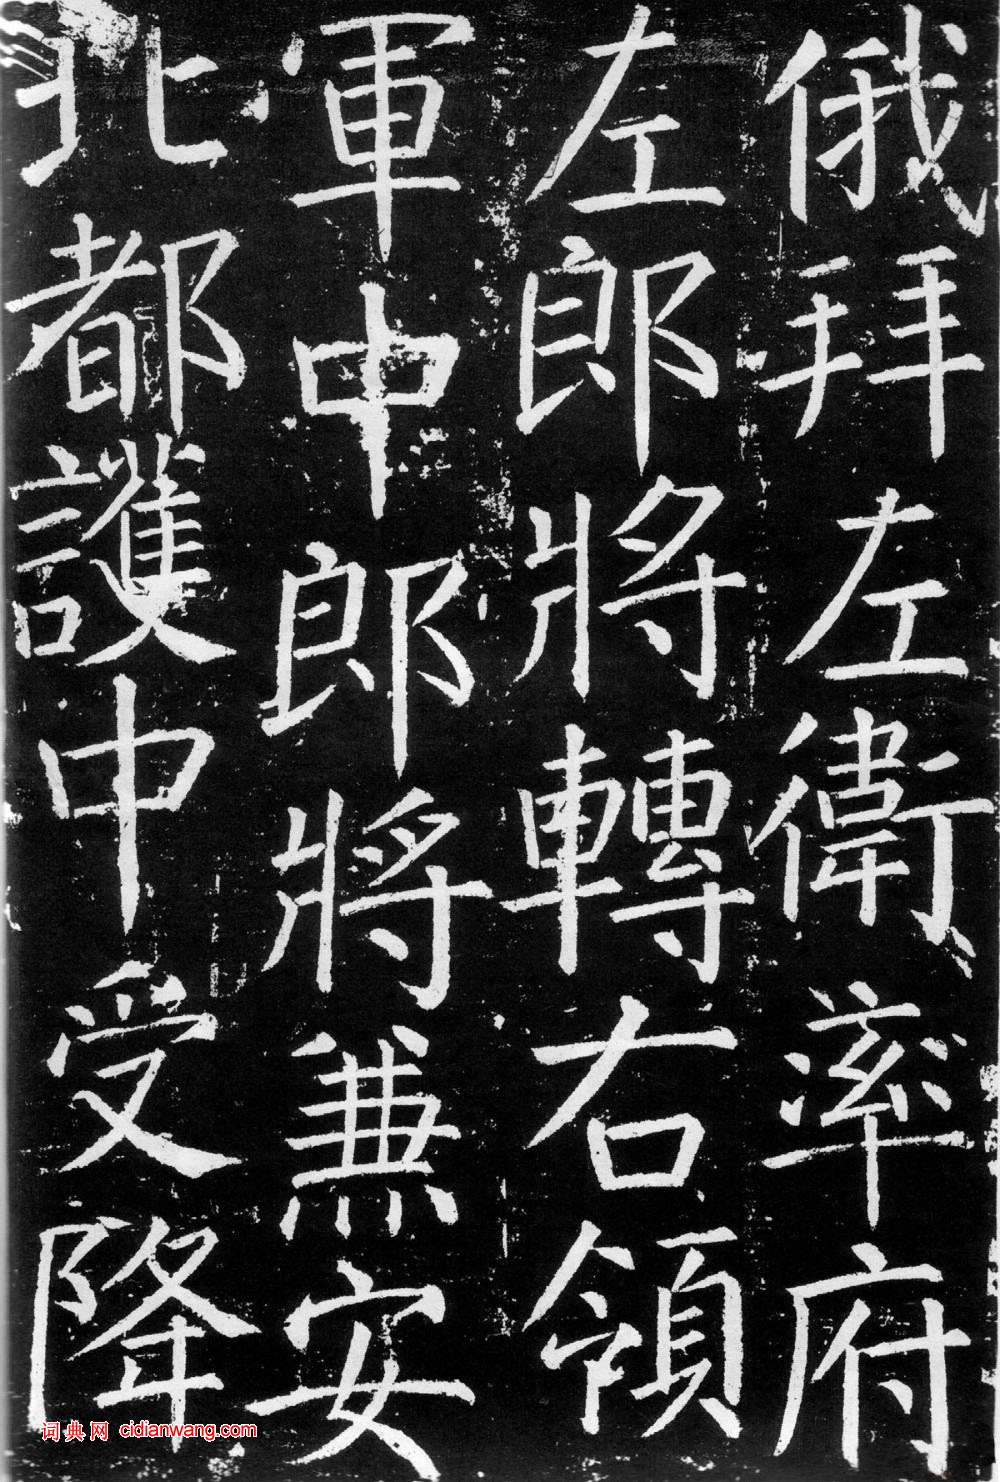 俄拜左衛率府
左郎將轉右領
軍中郎將兼安
北都護中受降
词典网 cidianwang.com